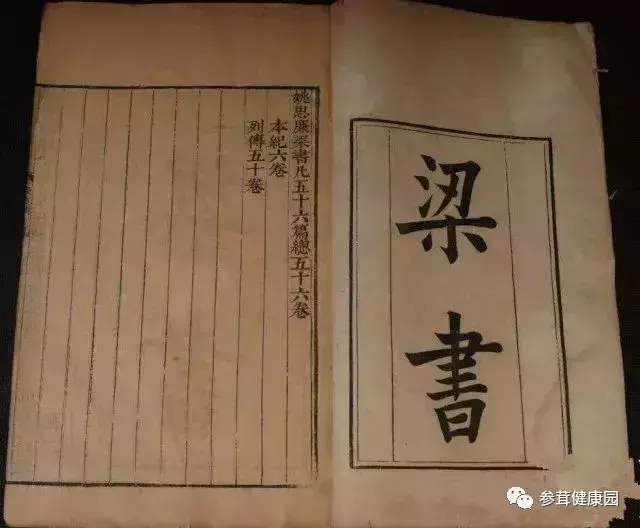 梁書
姚思廉梁書凡五十六篇總五十六卷
本紀六卷
列傳五十卷
参茸健康园